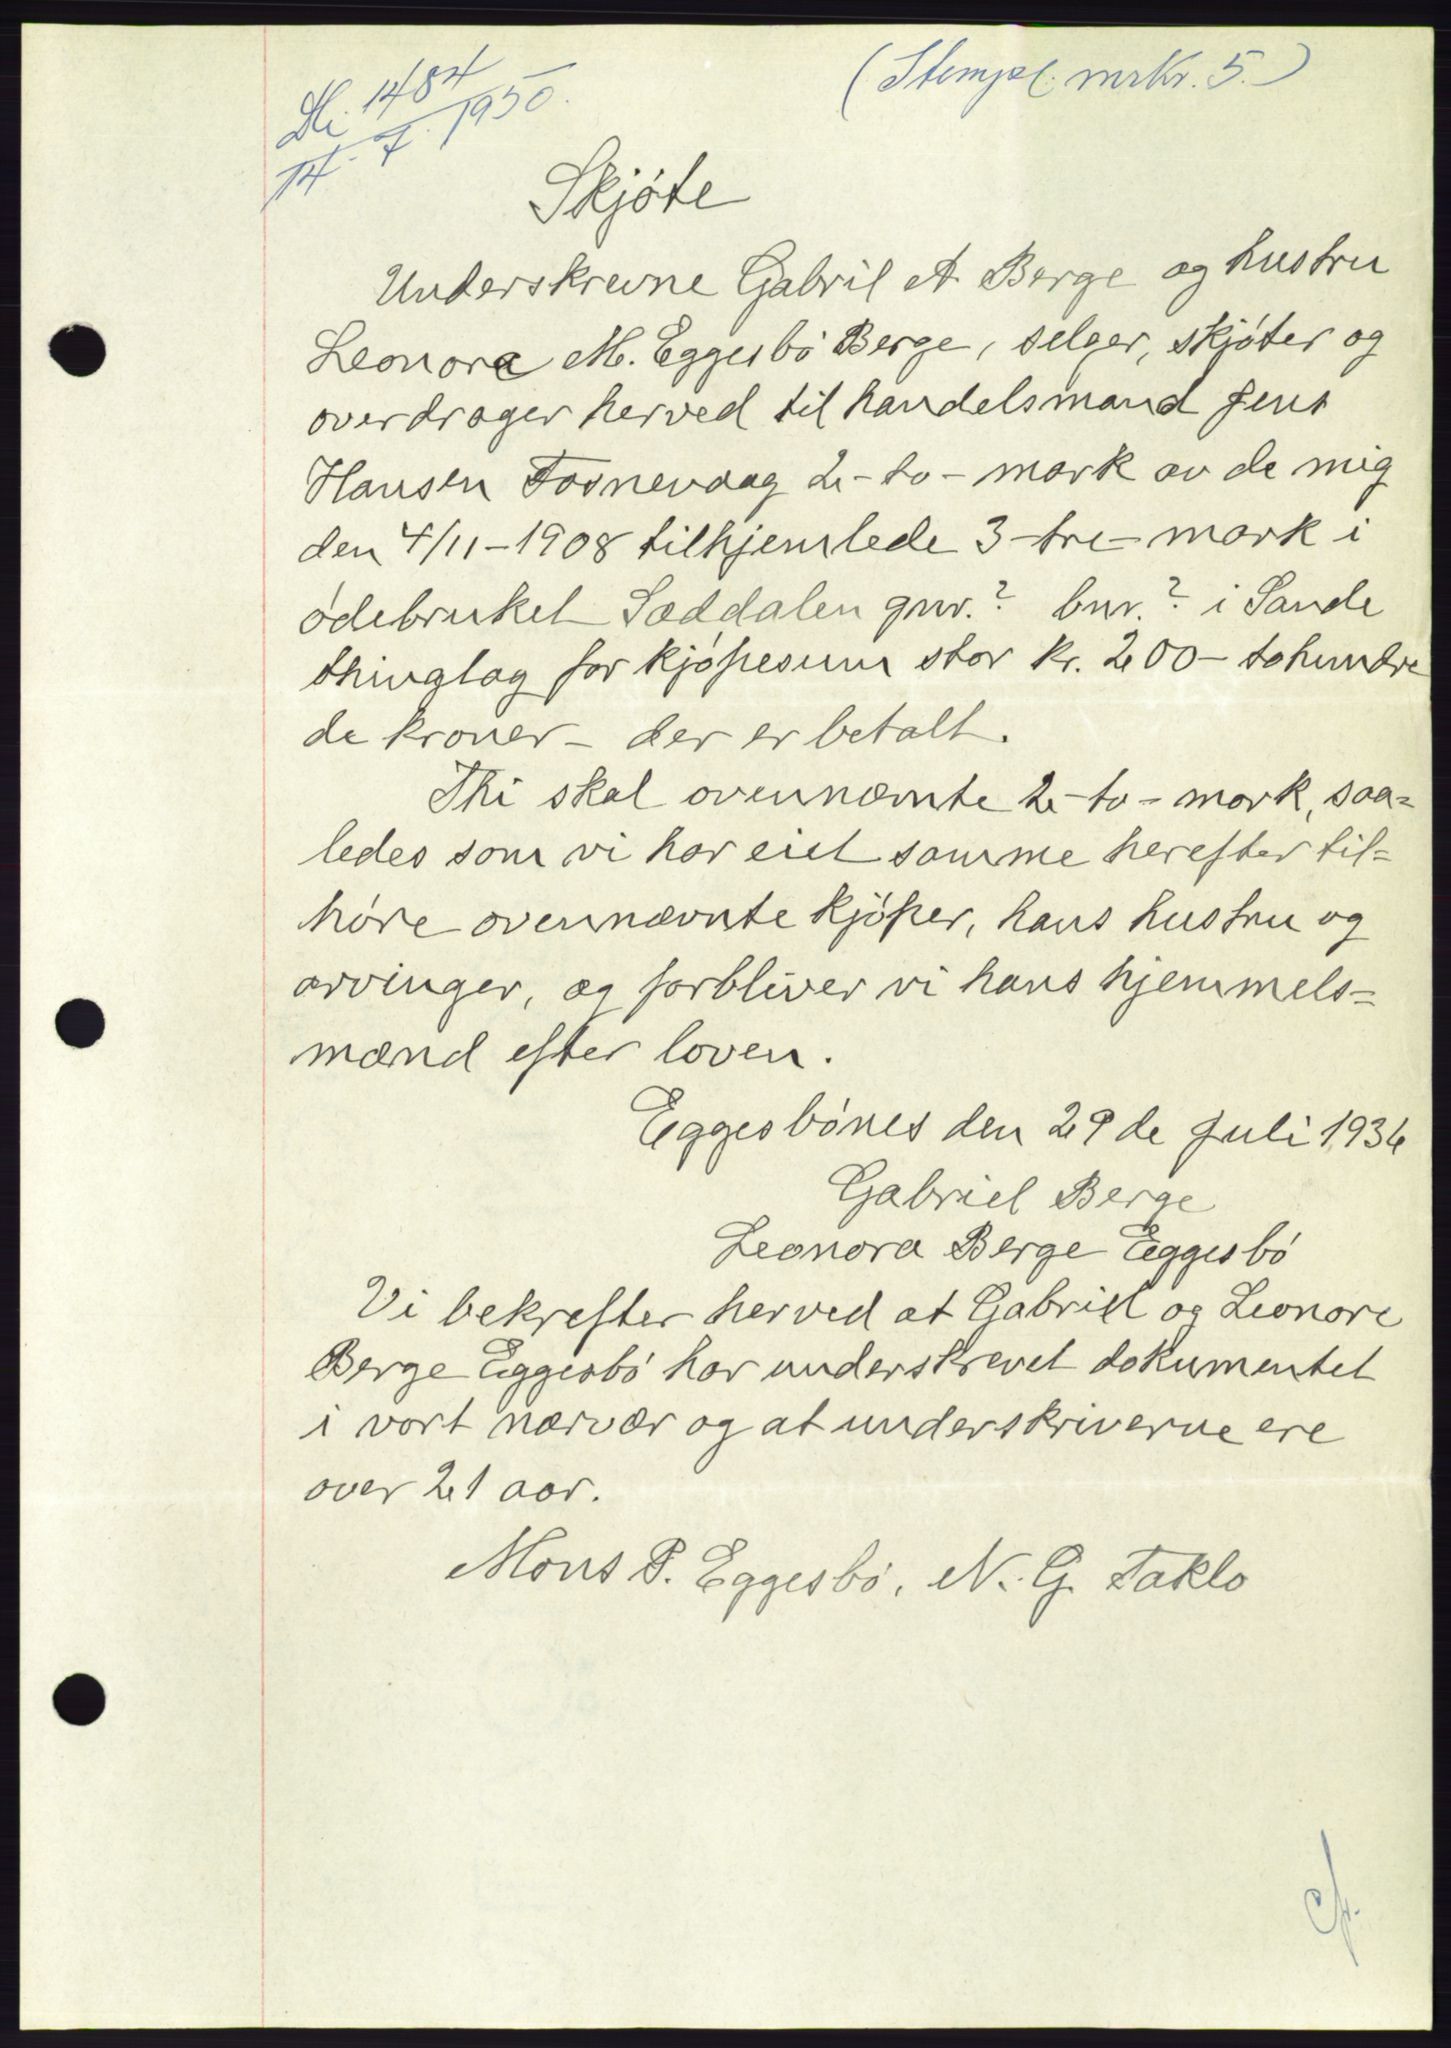 1484
14. 7. 1950.
(Stempel mrkr. 5.)
Skjóte
Underskrevne Gabril A Berge og hustru
Leonora M. Eggesbó Berge, selger, skjóter og
overdrager herved til handelsmand Jens
Hansen Fosnevaag 2-to-mark av de mig
den 4/11-1908 tilhjemlede 3-tre-mark i
ódebruket Sæddalen gnr.? bnr.? i Sande
thinglag for kjópesum stor kr. 200- tohundre
de kroner- der er betalt.
Thi skal ovennævnte 2-to-mark, saa=
ledes som vi har eiet samme herefter til=
hóre ovennævnte kjóper, hans hustru og
arvinger, og forbliver vi hans hjemmels=
mænd efter loven.
Eggesbónes den 29de Juli 1936
Gabriel Berge
Leonora Berge Eggesbó
Vi bekrefter herved at Gabriel og Leonore
Berge Eggesbó har underskrevet dokumentet
i vort nærvær og at underskriverne ere
over 21 aar.
Mons P. Eggesbó. N. G. Taklo